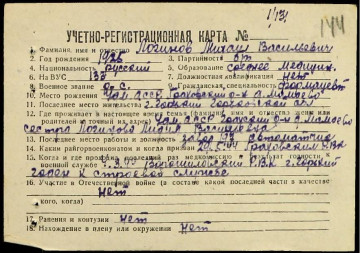 1/131
144
УЧЕТНО-РЕГИСТРАЦИОННАЯ КАРТА №
1. Фамилия, имя и отчество Логинов Михаил Васильевич
2. Год рождения 1926 3. Партийность б/п
4. Национальность русский 5. Образование среднее медицин.
6. На ВУС 133 7. Должностная квалификация нет
8. Военное звание 9. Гражданская специальность фармацевт
10. Место рождения АССР Граховский р-н
11. Последнее место жительства г. Горький Горьковской обл
12. Где проживает в настоящее время семья (фамилия, имя и отчество жены или
родителей и точный их адрес) АССР р-н
сестра Логинова Лидия Васильевна
13. Последнее место работы и должность завод
14. Каким райвоенкоматом и когда призван 29.5.44 Граховским РВК
15. Когда и где проходил последний раз медкомиссию. Результат годности к
военной службе Ворошиловский РВК г. Горький
годен к строевой службе
16. Участие в Отечественной войне (в составе какой последней части в качестве
кого, когда) нет
17. Ранения и контузии нет
18. Нахождение в плену или окружении нет